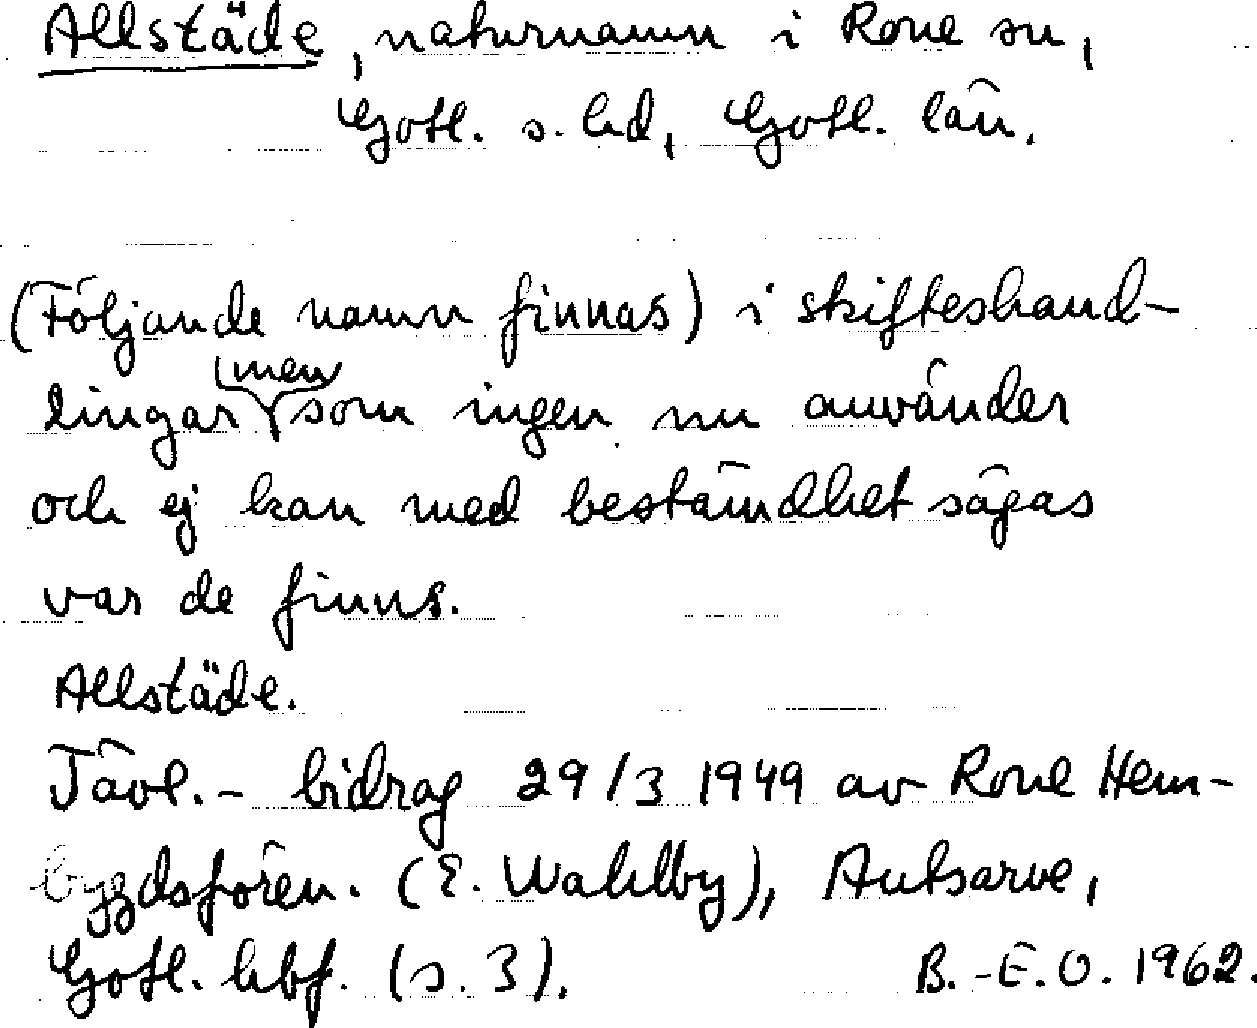 Allstäde, naturnamn i Rone sn,
Gotl. s. hd, Gotl. län.
(Följande namn finnas) i skifteshand-
lingar (men) som ingen nu använder
och ej kan med bestämdhet sägas
var de finns.
Allstäde.
Tävl.- bidrag 29/3 1949 av Rone Hem-
bygdsfören. (E. Wahlby), Autsarve,
Gotl. hbf. (s. 3). B.-E.O. 1962.